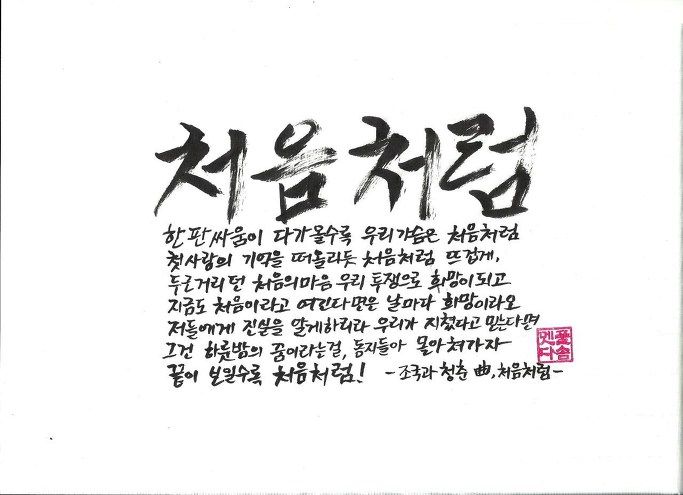 처음처럼
한판싸움이 다가올수록 우리가슴은 처음처럼
첫사랑의 기억을 떠올리듯 처음처럼 뜨겁게,
두근거리던 처음의마음 우리 투쟁으로 희망이되고
지금도 처음이라고 여긴다면은 날마다 희망이라오
저들에게 진실을 알게하리라 우리가 지쳤다고 믿는다면
그건 하룻밤의 꿈이라는걸, 동지들아 몰아쳐가자
끝이 보일수록 처음처럼! - 조국과청춘 曲, 처음처럼-